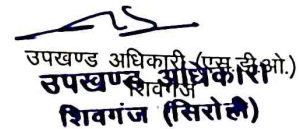 उपखण्ड अधिकारी (एस.डी.ओ.)
शिवगंज
उपखण्ड अधिकारी
शिवगंज (सिरोही)